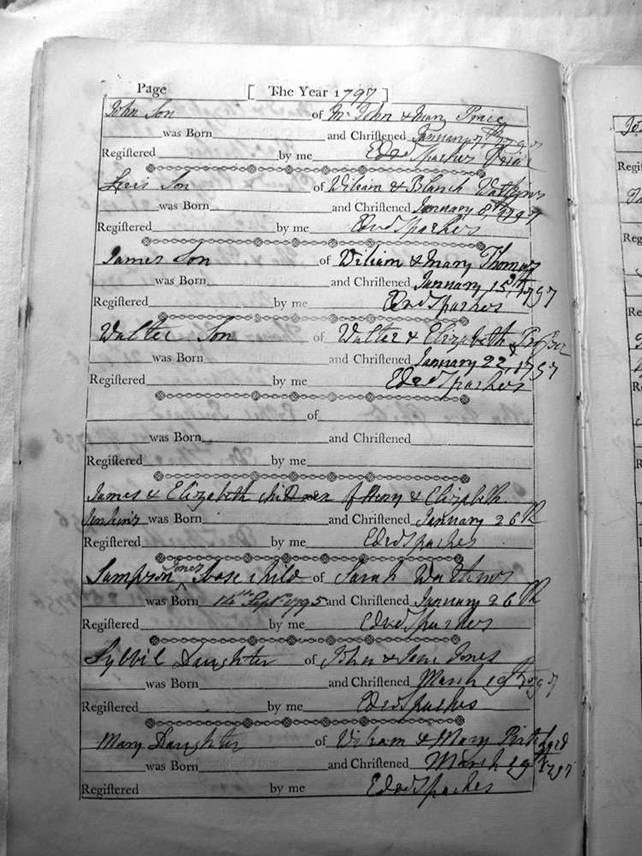 Page [ The Year 1797 ]
John Son of Mr John & Mary Price
was Born and Chriſtened January 7th 1797
Regiſtered by me Edwd Sparkes
Son of William & Blanch Watkins
was Born and Chriſtened January 8th 1797
Regiſtered by me Edwd Sparkes
James Son of William & Mary Thomas
was Born and Chriſtened January 15th 1797
Regiſtered by me Edwd Sparkes
Walter Son of Walter & Elizabeth
was Born and Chriſtened January 22d 1797
Regiſtered by me Edwd Sparkes
of
was Born and Chriſtened
Regiſtered by me
James & Elizabeth children of Henry & Elizabeth
Jenkins was Born and Chriſtened January 26th
Regiſtered by me Edwd Sparkes
Sampson Jones base child of Sarah Watkins
was Born 14th Sept 1795 and Chriſtened January 26th
Regiſtered by me Edwd Sparkes
Sybbil Daughter of John & Jane Jones
was Born and Chriſtened March 19th 1797
Regiſtered by me Edwd Sparkes
Mary Daughter of William & Mary
was Born and Chriſtened March 19th 1797
Regiſtered by me Edwd Sparkes